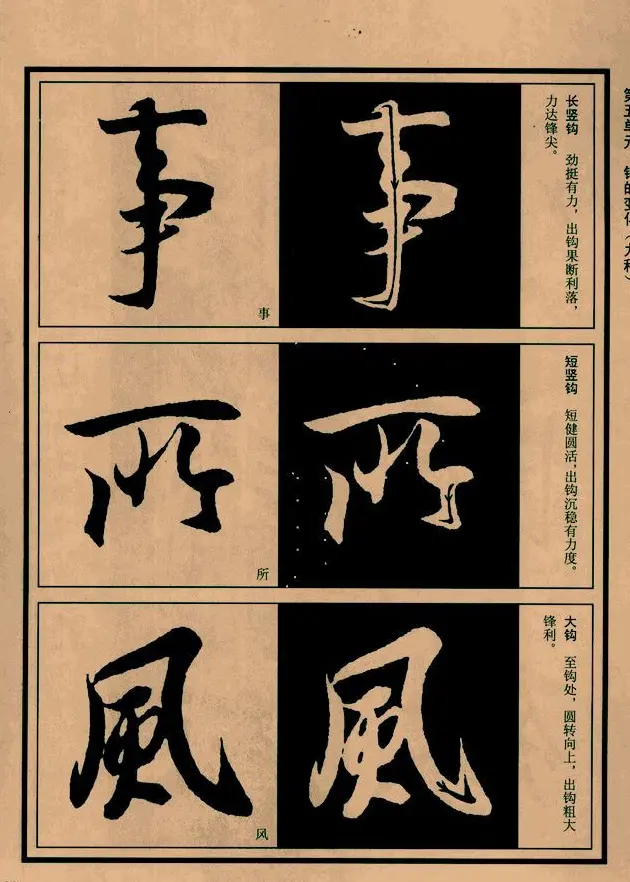 第五单元 钩的变化(九种)
长竖钩 劲挺有力，出钩果断利落，
力达锋尖。
事
事
事
短竖钩 短健圆活，出钩沉稳有力度。
所
所
所
大钩 至钩处，圆转向上，出钩粗大
锋利。
風
風
风